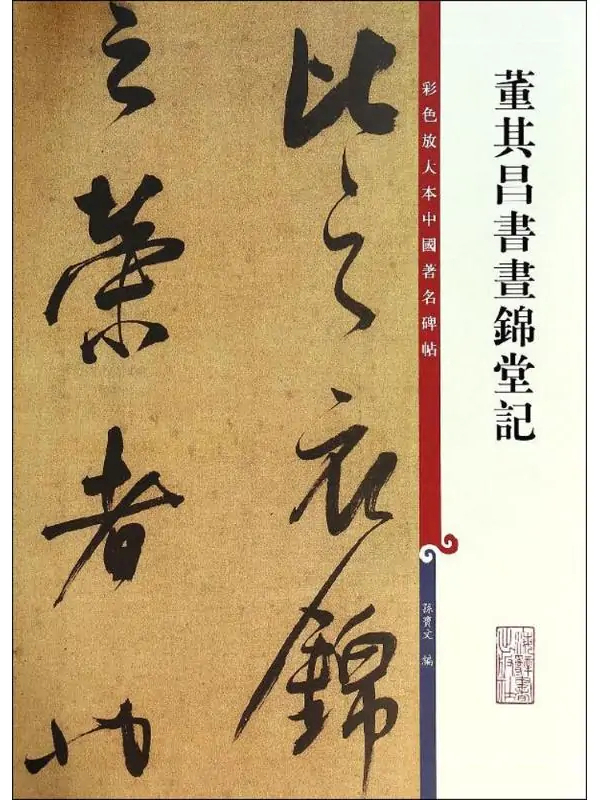 董其昌書晝錦堂記
彩色放大本中國著名碑帖
孫寶文 編
上海辭書
出版社
比之衣錦
之榮者也